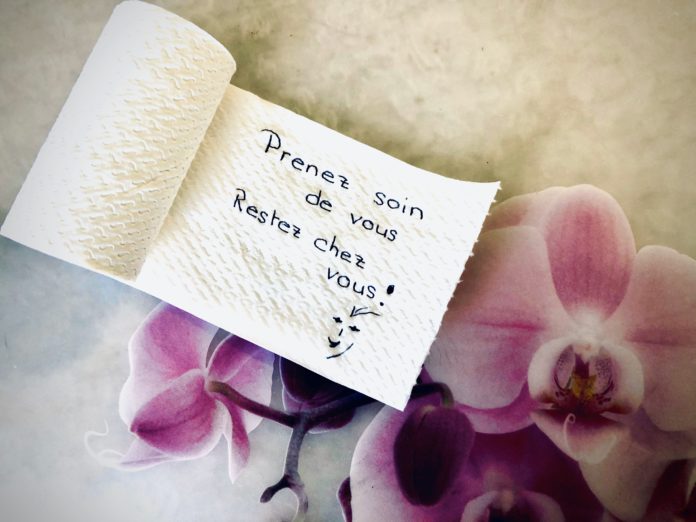 Prenez soin
de vous
Restez chez
vous!